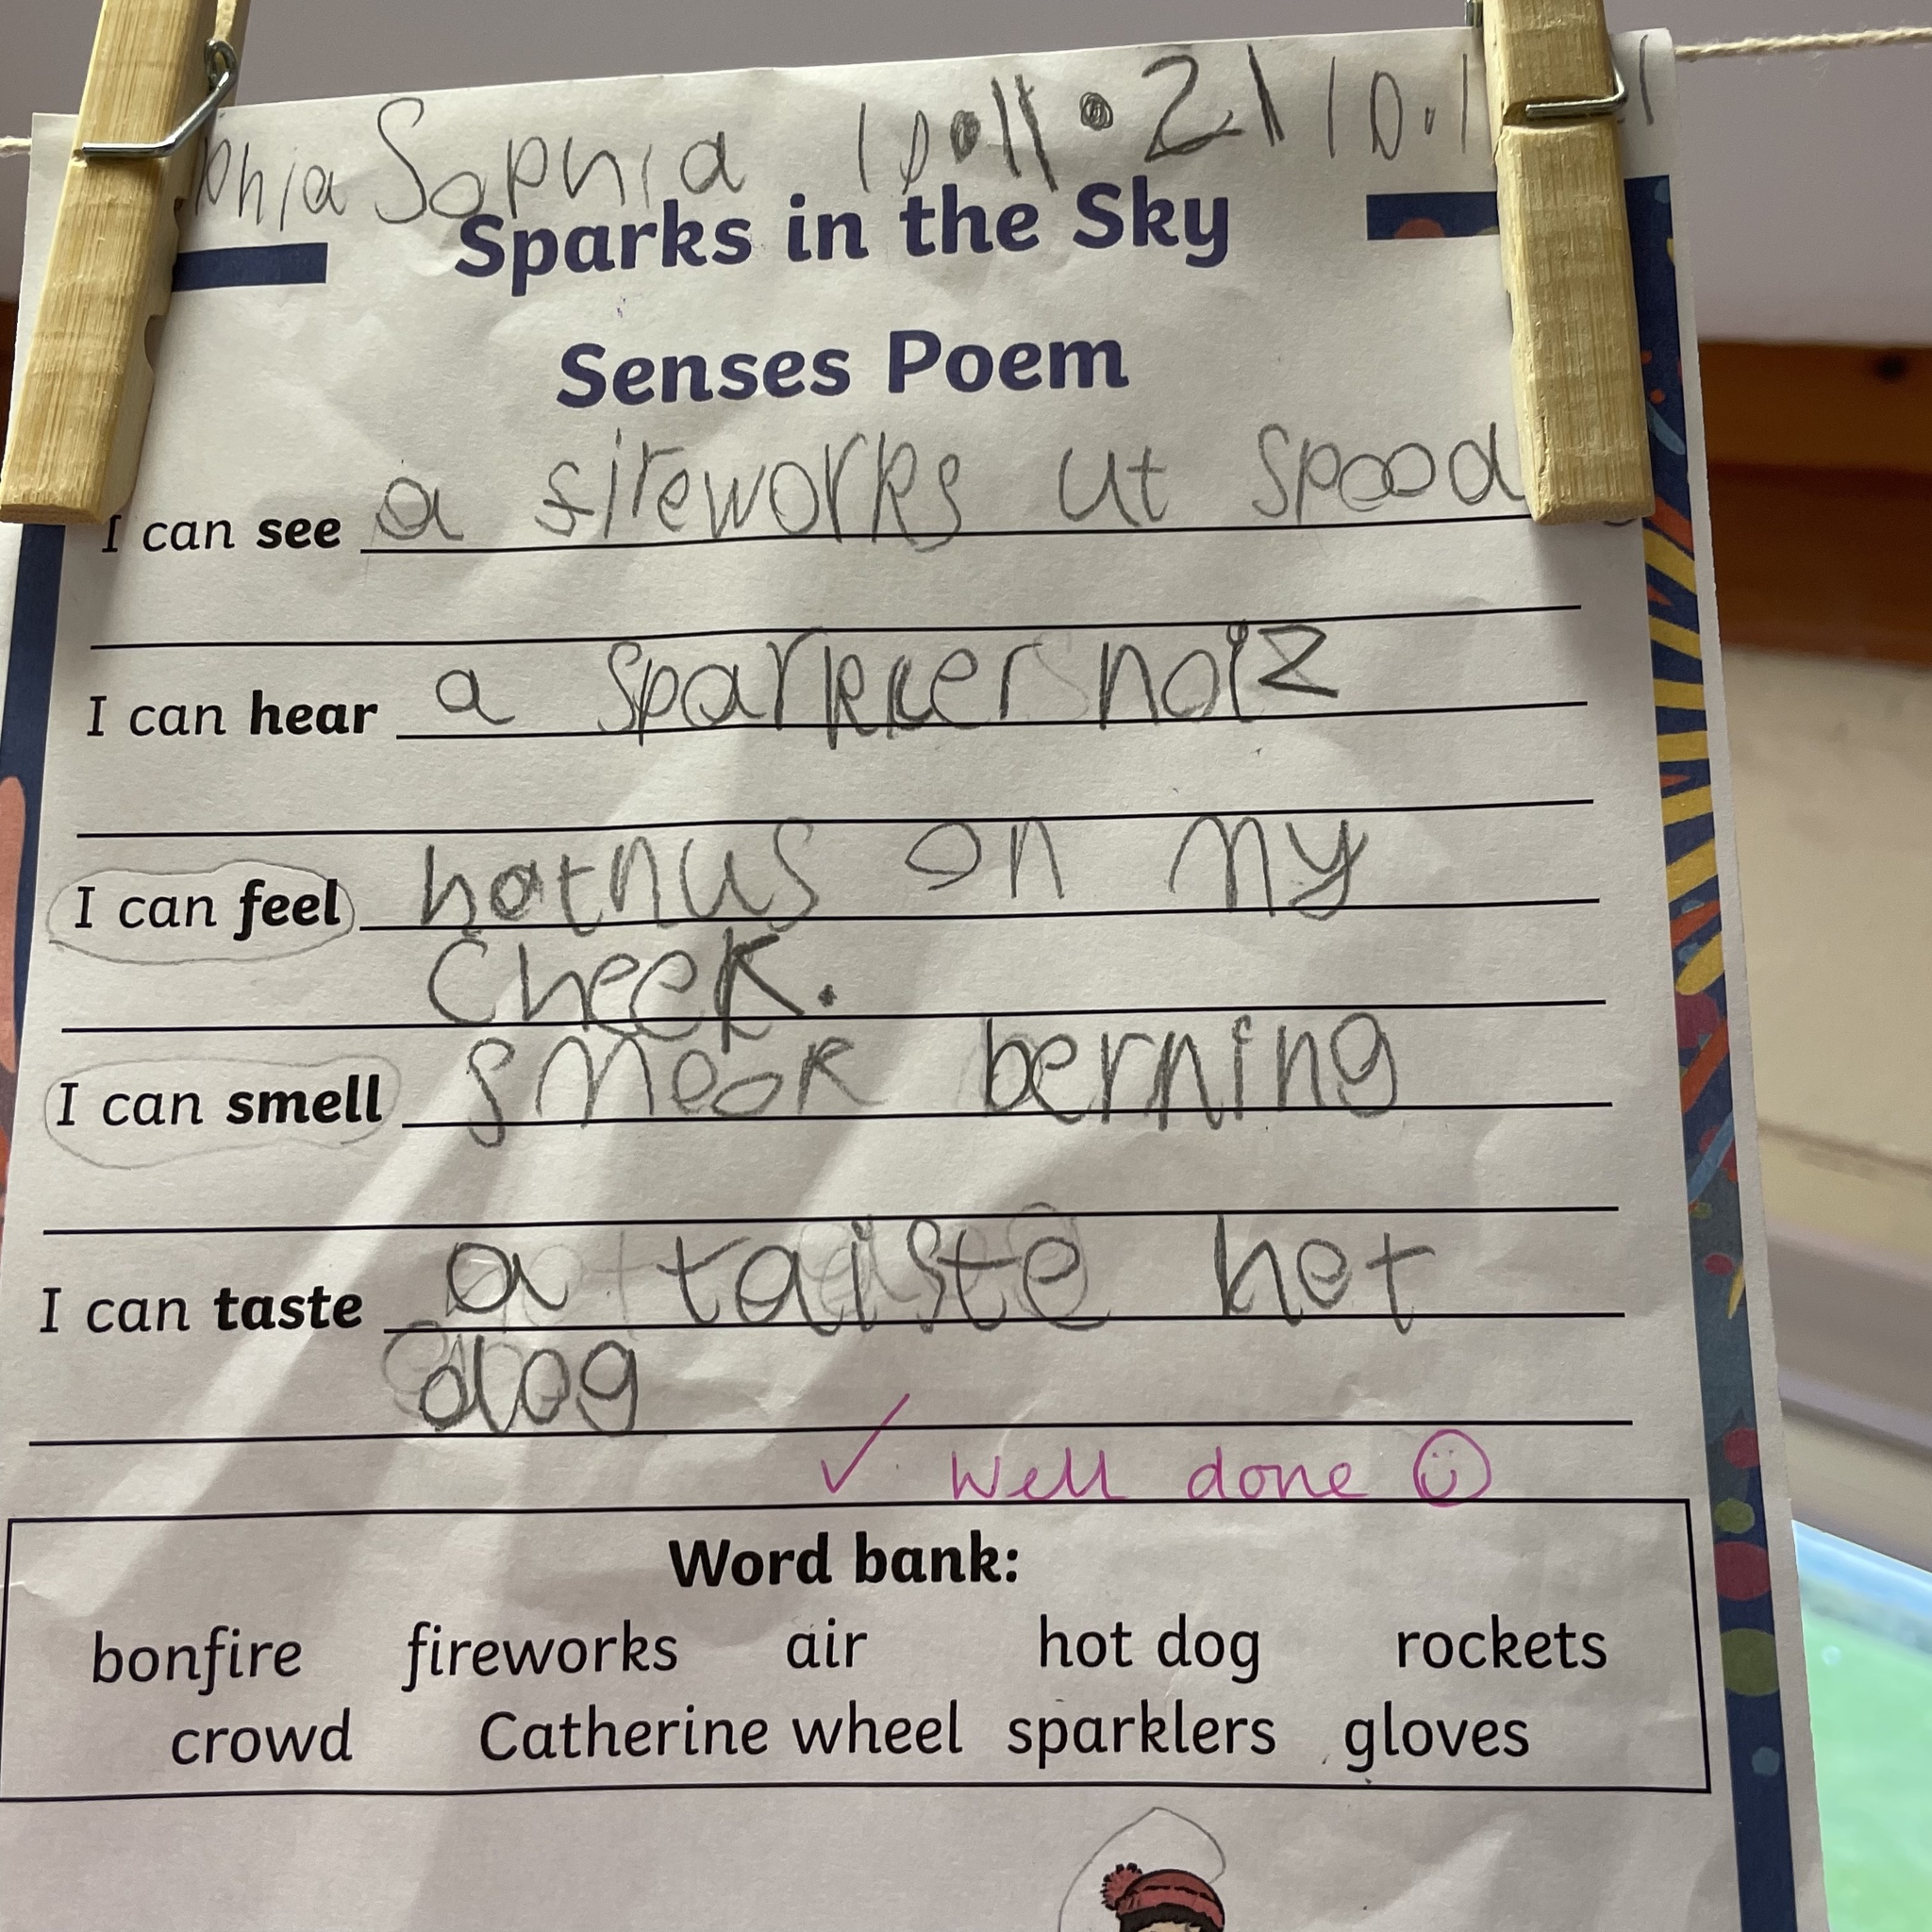 phia Sophia 10.11.21 10.1
Sparks in the Sky
Senses Poem
I can see a fireworks ut spood
I can hear a sparkcer noiz
I can feel hotnus on my
cheek.
I can smell smeok berning
I can taste a taiste hot
dog
✓ Well done ☺
Word bank:
bonfire fireworks air hot dog rockets
crowd Catherine wheel sparklers gloves